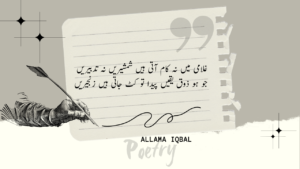 غلامی میں نہ کام آتی ہیں شمشیریں نہ تدبیریں
جو ہو ذوق یقیں پیدا تو کٹ جاتی ہیں زنجیریں
ALLAMA IQBAL
Poetry